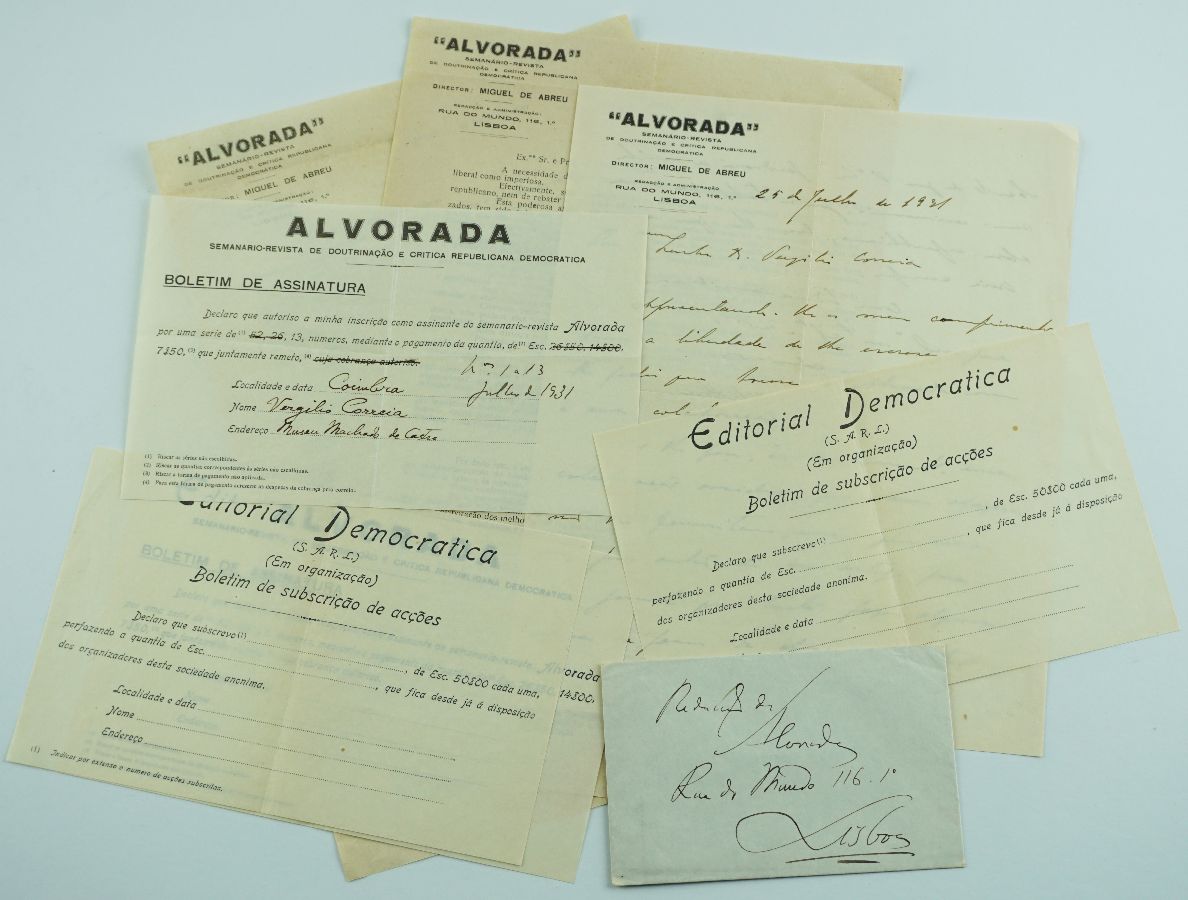 "ALVORADA"
SEMANÁRIO-REVISTA
DE DOUTRINAÇÃO E CRÍTICA REPUBLICANA
DEMOCRATICA
DIRECTOR: MIGUEL DE ABREU
REDACÇÃO E ADMINISTRAÇÃO:
RUA DO MUNDO, 116, 1.º
LISBOA
A necessidade d
liberal como imperiosa.
Efectivamente, s
republicano, nem de rebater
Esta poderosa a
"ALVORADA"
SEMANÁRIO-REVISTA
DE DOUTRINAÇÃO E CRÍTICA REPUBLICANA
DEMOCRATICA
MIGUEL DE ABREU
"ALVORADA"
SEMANÁRIO-REVISTA
DE DOUTRINAÇÃO E CRÍTICA REPUBLICANA
DEMOCRATICA
DIRECTOR: MIGUEL DE ABREU
REDACÇÃO E ADMINISTRAÇÃO
RUA DO MUNDO, 116, 1.º
LISBOA
25 de Julho de 1931
Vergilio Correia
a liberdade de lhe
ALVORADA
SEMANARIO-REVISTA DE DOUTRINAÇÃO E CRITICA REPUBLICANA DEMOCRATICA
BOLETIM DE ASSINATURA
Declaro que autoriso a minha inscrição como assinante do semanario-revista Alvorada
por uma serie de (1) 52, 26, 13, numeros, mediante o pagamento da quantia, de (2) Esc. 26$50, 14$00,
7$50, (3) que juntamente remeto, (4) cuja cobrança autoriso.
N.os 1 a 13
Localidade e data Coimbra Julho de 1931
Nome Vergilio Correia
Endereço Museu Machado de Castro
(1) Riscar as séries não escolhidas.
(2) Riscar as quantias correspondentes ás séries não escolhidas.
(3) Riscar a forma de pagamento não aplicada.
(4) Para esta fórma de pagamento acrescem as despesas da cobrança pelo correio.
Editorial Democratica
(S. A. R. L.)
(Em organização)
Boletim de subscrição de acções
Declaro que subscrevo (1) , de Esc. 50$00 cada uma,
perfazendo a quantia de Esc. , que fica desde já á disposição
dos organizadores desta sociedade anonima.
Localidade e data
Editorial Democratica
(S. A. R. L.)
(Em organização)
Boletim de subscrição de acções
Declaro que subscrevo (1) , de Esc. 50$00 cada uma,
perfazendo a quantia de Esc. , que fica desde já á disposição
dos organizadores desta sociedade anonima.
Localidade e data
Nome
Endereço
(1) Indicar por extenso o numero de acções subscritas.
Alvorada
14$00,
Redacção da
Alvorada
Rua do Mundo 116-1º
Lisboa